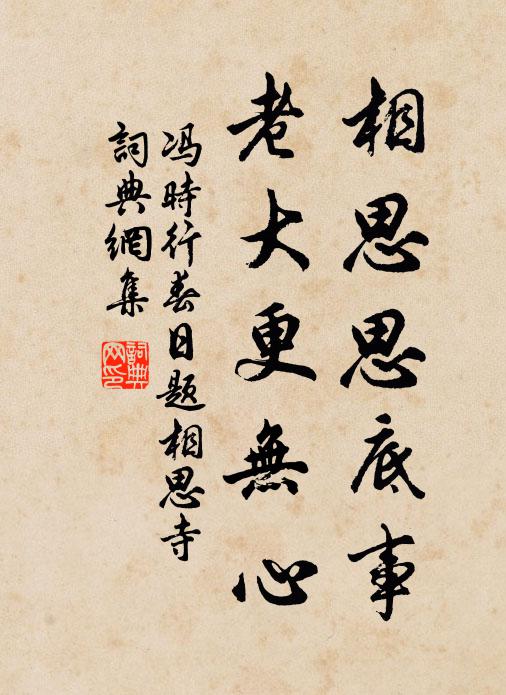 相思思底事
老大更無心
冯時行春日题相思寺
詞典網集
詞典
网印